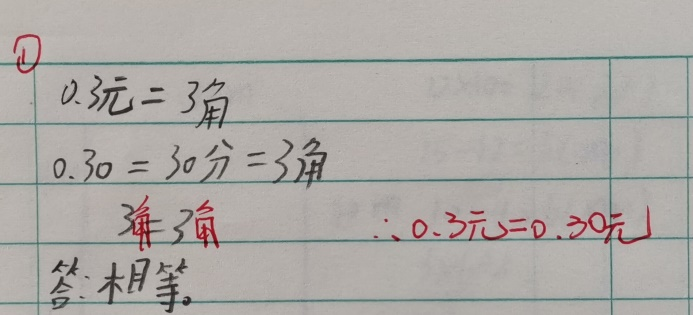 ①
0.3元=3角
0.30=30分=3角
3角=3角 ∴0.3元=0.30元
答:相等。